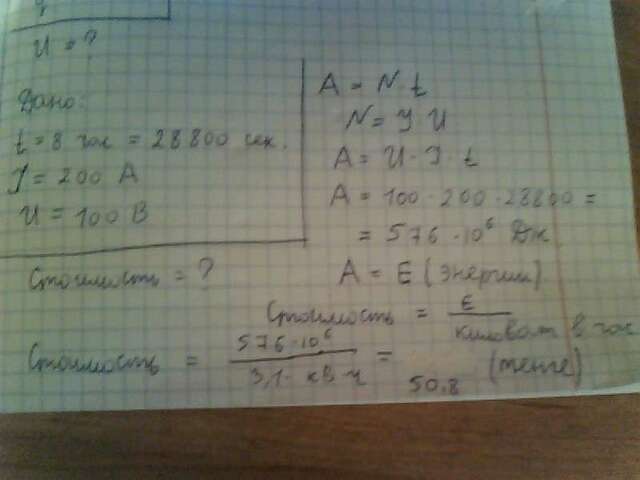 U = ?
Дано:
t = 8 час = 28800 сек.
J = 200 А
U = 100 В
Стоимость = ?
A = N · t
N = J · U
A = U · J · t
A = 100 · 200 · 28800 =
= 576 · 10⁶ Дж
A = E (энергии).
Стоимость = E / киловат в час
Стоимость = 576 · 10⁶ / 3,1 · кВ · ч = 50,8 (тенге)